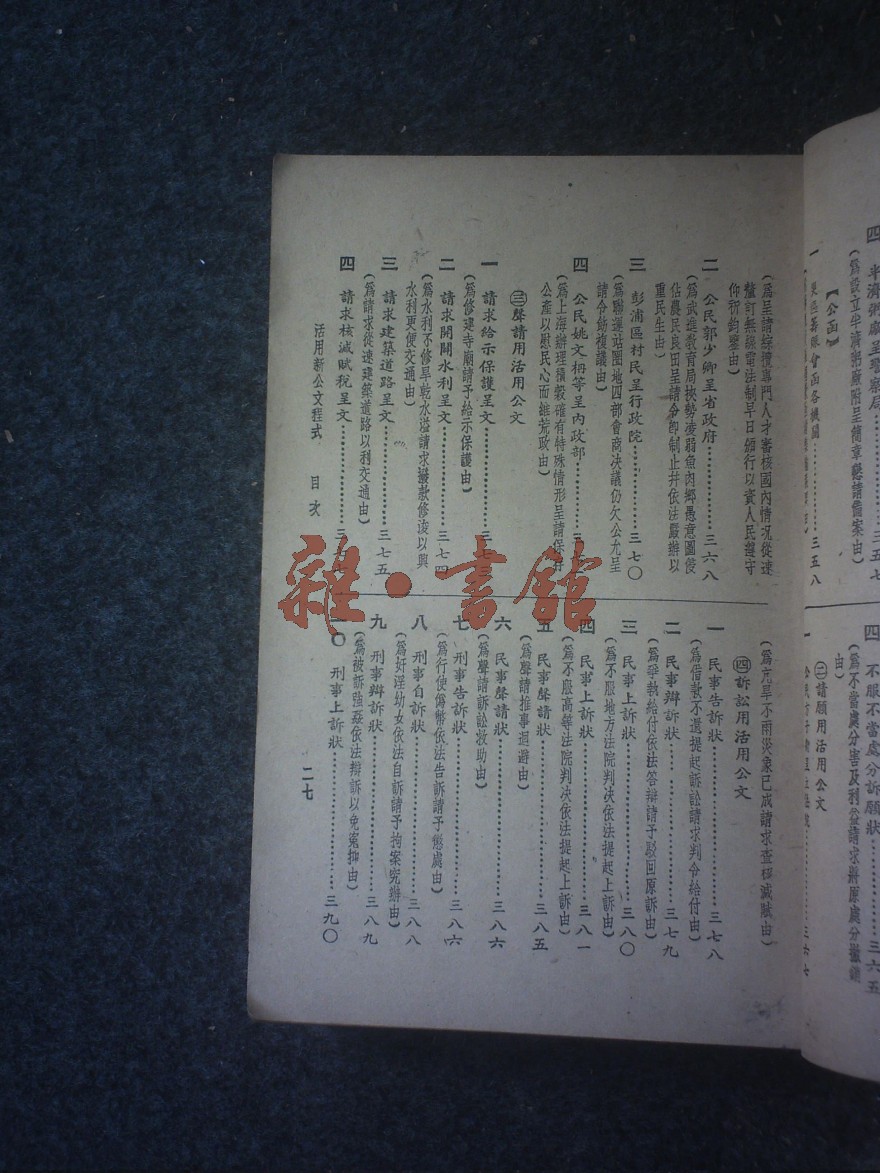 四 不服不當處分訴願狀……三六五
(為不當處分害及利益請求將原處分撤銷
由)
㊁請願用活用公文
(為呈請綜攬專門人才審核國內情況從速
釐訂無線電法制早日頒行以資人民遵守
仰祈鈞鑒由)
二 公民郭少卿呈省政府……三六八
(為武進教育局挾勢凌弱魚肉鄉愚意圖侵
佔農民良田呈請令卽制止幷依法嚴辦以
重民生由)
三 彭浦區村民呈行政院……三七〇
(為聯運站圈地四部會商決議仍欠公允呈
請令飭複議由)
四 公民姚文枬等呈內政部
(為上海辦理積穀確有特殊情形呈請保存
公產以慰民心而維荒政由)
㊂聲請用活用公文
一 請求給示保護呈文
(為修建寺廟請予給示保護由)
二 請求開闢水利呈文……三七四
(為水利不修旱乾水溢請求撥款修浚以興
水利更便交通由)
三 請求建築道路呈文……三七五
(為請求從速建築道路以利交通由)
四 請求核減賦稅呈文
(為亢旱不雨災象已成請求查核減賦由)
㊃訴訟用活用公文
一 民事告訴狀……三七八
(為借款不還提起訴訟請求判令給付由)
二 民事辯訴狀……三七九
(為爭執給付依法答辯請予駁回原訴由)
三 民事上訴狀……三八〇
(為不服地方法院判決依法提起上訴由)
四 民事上訴狀……三八一
(為不服高等法院判決依法提起上訴由)
五 民事聲請狀……三八五
(為聲請推事迴避由)
六 民事聲請狀……三八六
(為聲請訴訟救助由)
七 刑事告訴狀……三八六
(為行使偽幣依法告訴請予懲處由)
八 刑事自訴狀……三八八
(為奸淫幼女依法自訴請予拘案究辦由)
九 刑事辯訴狀……三八九
(為被訴強姦依法辯訴以免寃抑由)
一〇 刑事上訴狀……三九〇
活用新公文程式 目次
二七
雜·書館